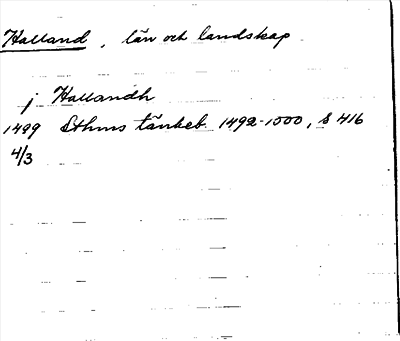 Halland, län och landskap
j Hallandh
1499 Sthms tänkeb. 1492-1500, s 416
4/3